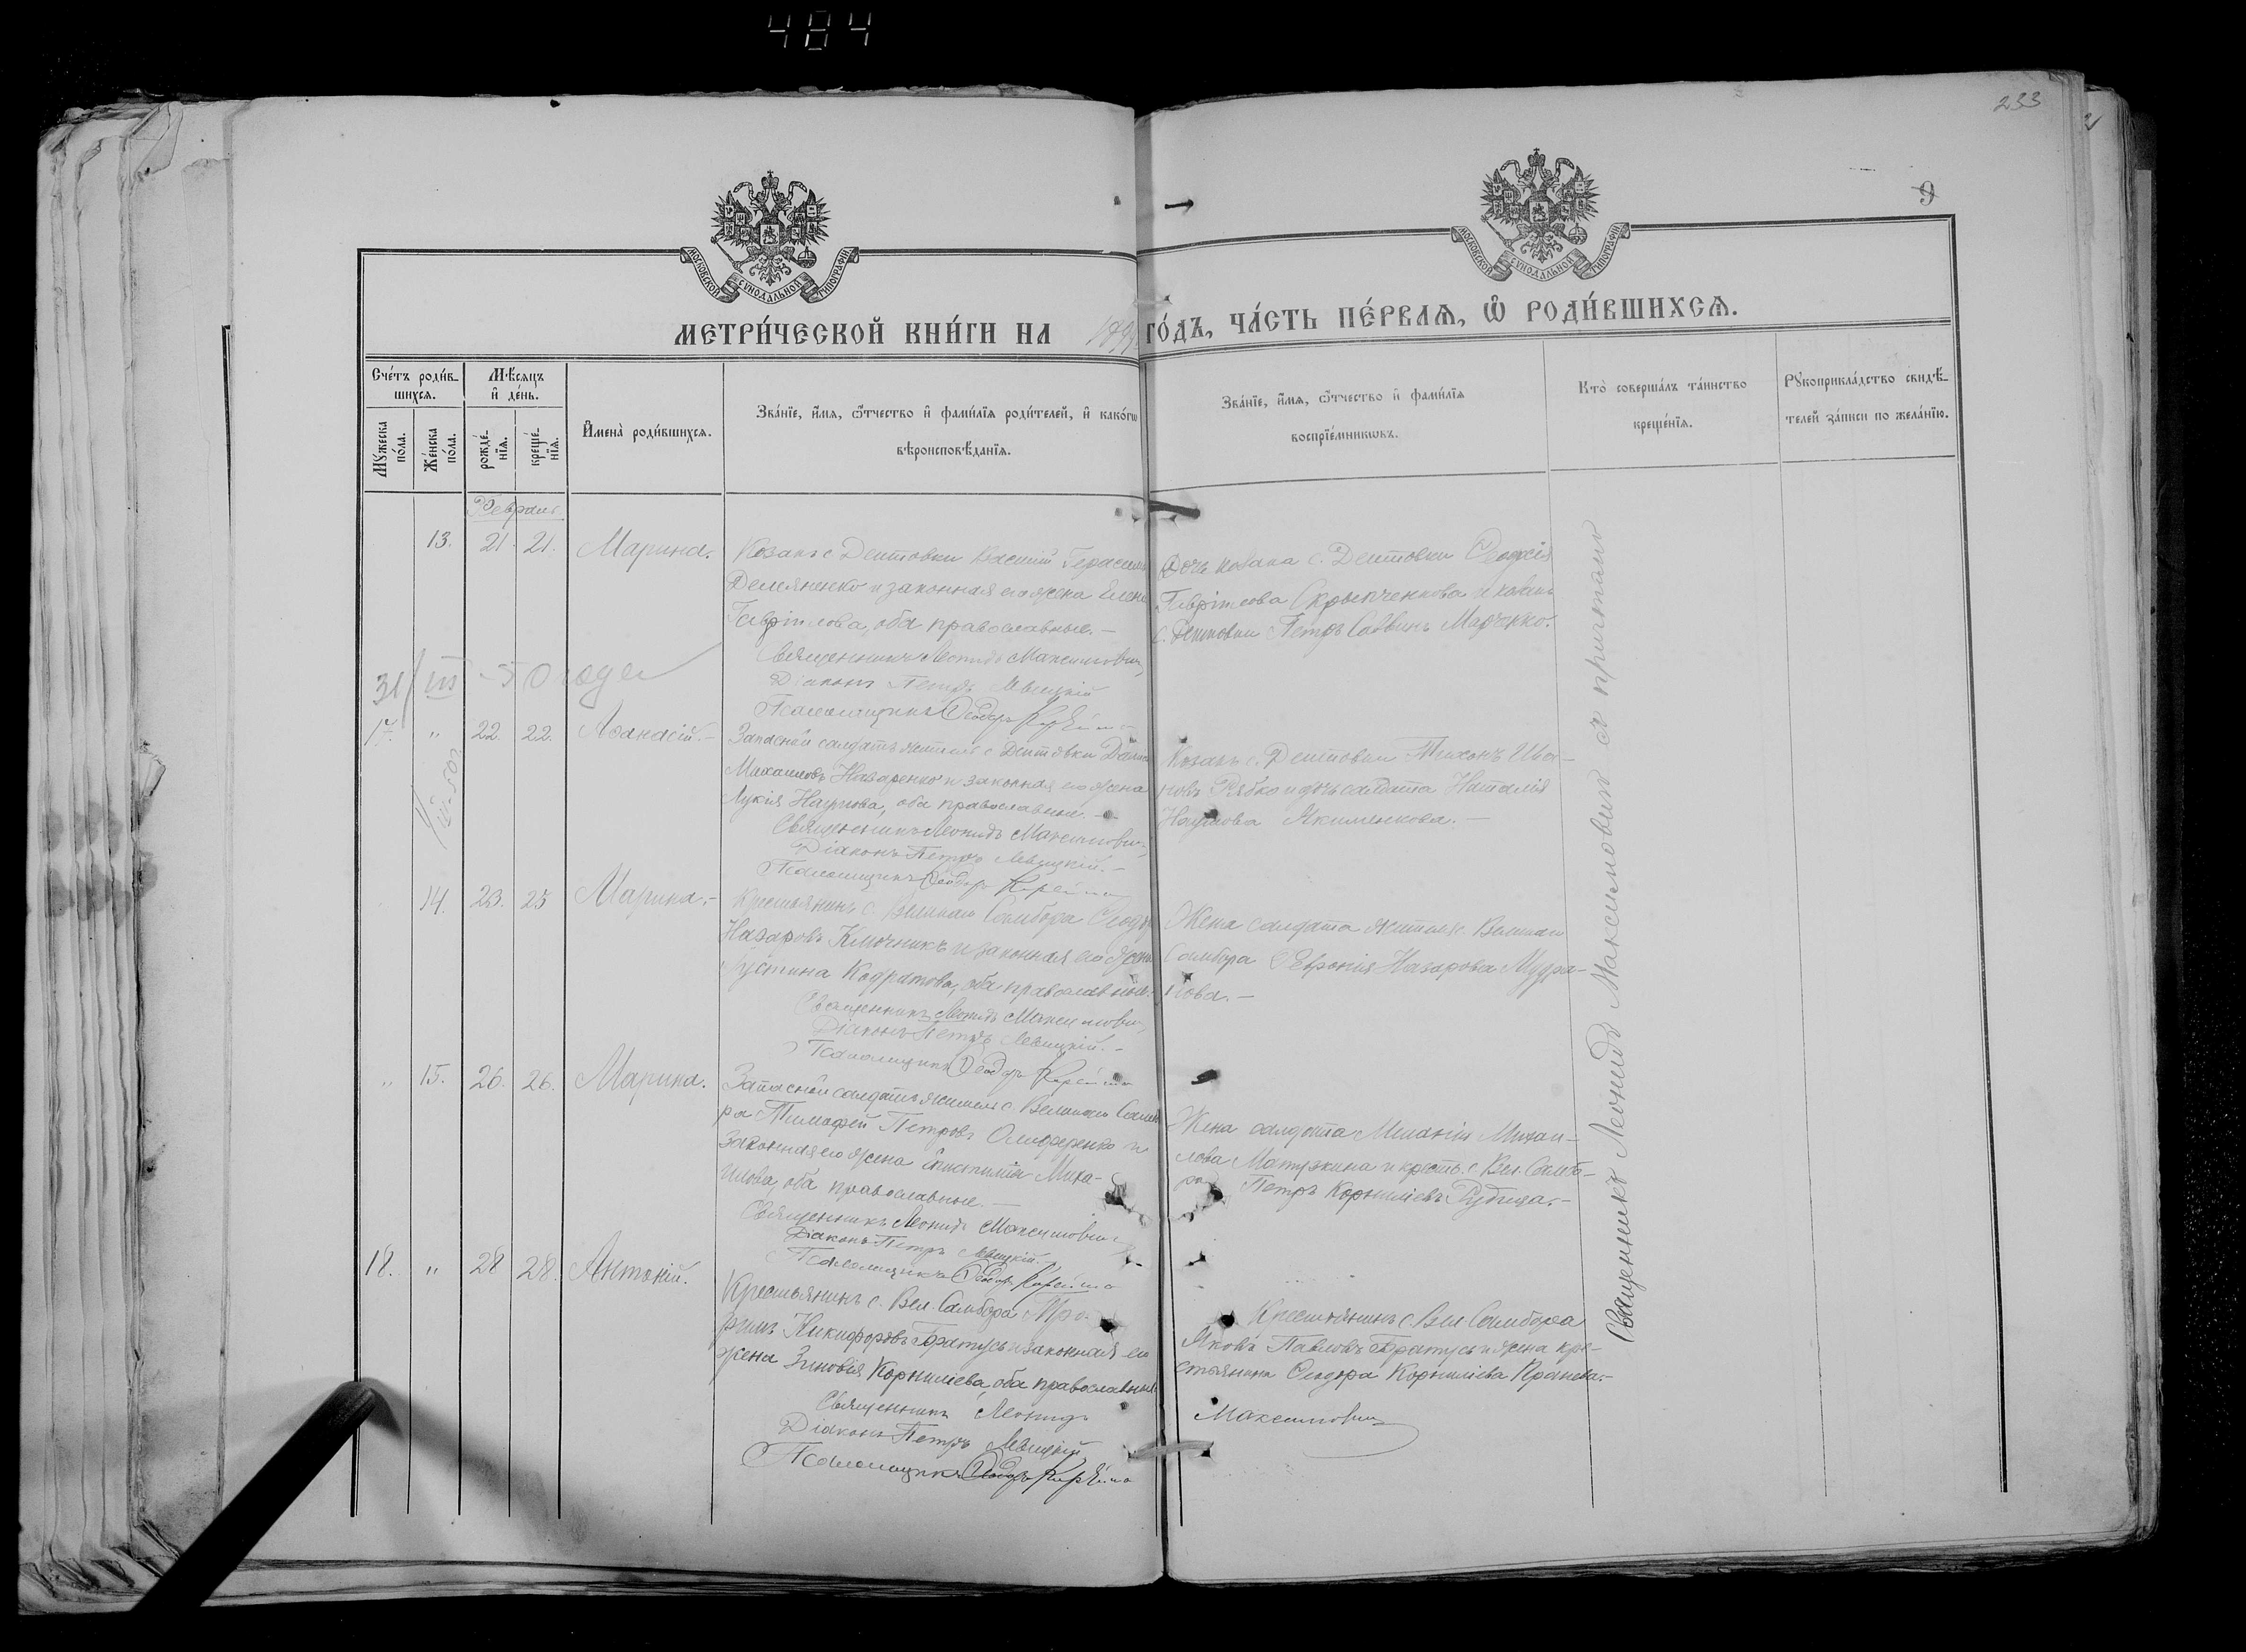 484
233
9
МОСКОВСКОЙ СѴНОДАЛЬНОЙ ТИПОГРАФІИ
МОСКОВСКОЙ СѴНОДАЛЬНОЙ ТИПОГРАФІИ
МЕТРИ́ЧЕСКОЙ КНИ́ГИ НА
ГО́ДЪ, ЧА́СТЬ ПЕ́РВАѦ, Ѡ҆ РОДИ́ВШИХСѦ.
Сче́тъ роди́в-
шихсѧ.
Мѣ́сяцъ
и҆ де́нь.
Мꙋ́жеска
по́ла.
Же́нска
по́ла.
рожде́-
нїѧ.
креще́-
нїѧ.
И҆мена̀ роди́вшихсѧ.
Зва́нїе, и҆́мѧ, ѻ҆́тчество и҆ фами́лїѧ роди́телей, и҆ како́гѡ
вѣроисповѣ́данїѧ.
Зва́нїе, и҆́мѧ, ѻ҆́тчество и҆ фами́лїѧ
воспрїе́мникѡвъ.
Кто̀ соверша́лъ та́инство
креще́нїѧ.
Рꙋкоприкла́дство свидѣ́-
телей за́писи по жела́нїю.
Февраль
13. 21. 21. Марина.
Козакъ с. Дептовки Василій Герасим
Демяненко и законная его жена Елена
Гавріилова, оба православные. —
Священникъ Леонидъ Максимович,
Діаконъ Петръ Левицкій
Псаломщикъ Ѳеодоръ
Дочь козака с. Дептовки
Гавріилова Скрыпченкова и козакъ
с. Дептовки Петръ Саввинъ Марченко.
31/III - 50 года
17. " 22. 22. Аѳанасій. —
Запасной солдатъ житель с. Дептовки
Михаиловъ Назаренко и законная его жена
Лукія Наумова, оба православные. —
Священникъ Леонидъ Максимович,
Діаконъ Петръ Левицкій. —
Псаломщикъ Ѳеодоръ
Козакъ с. Дептовки Тихонъ
Рябко и дочь солдата Наталія
Наумова Якименкова. —
14. 23. 25 Марина. —
Крестьянинъ с. Великаго Самбора Ѳеодоръ
Назаровъ Ключникъ и законная его жена
Іустина Кодратова, оба православные.
Священникъ Леонидъ Максимович,
Діаконъ Петръ Левицкій. —
Псаломщикъ Ѳеодоръ
Жена солдата жителя с. Великаго
Самбора Назарова Мудра-
кова. —
" 15. 26. 26. Марина.
Запасной солдатъ житель с. Великаго Самбо
ра Тимофей Петровъ Олиференко и
законная его жена Епистимія Миха-
илова, оба православные. —
Священникъ Леонидъ Максимович
Діаконъ Петръ Левицкій. —
Псаломщикъ Ѳеодоръ
Жена солдата Меланія Михаи-
лова и крест. с. Вел. Самбо-
ра Петръ Корниліевъ —
18. " 28 28. Антоній.
Крестьянинъ с. Вел. Самбора
Никифоровъ Братусь и законная его
жена Зиновія Корниліева, оба православные
Священникъ Леонидъ
Максимович
Діаконъ Петръ Левицкій
Псаломщикъ Ѳеодоръ
Крестьянинъ с. Вел. Самбора
Яковъ Павловъ Братусь и жена кре-
стьянина Корниліева —
Священникъ Леонидъ Максимовичъ съ причтомъ